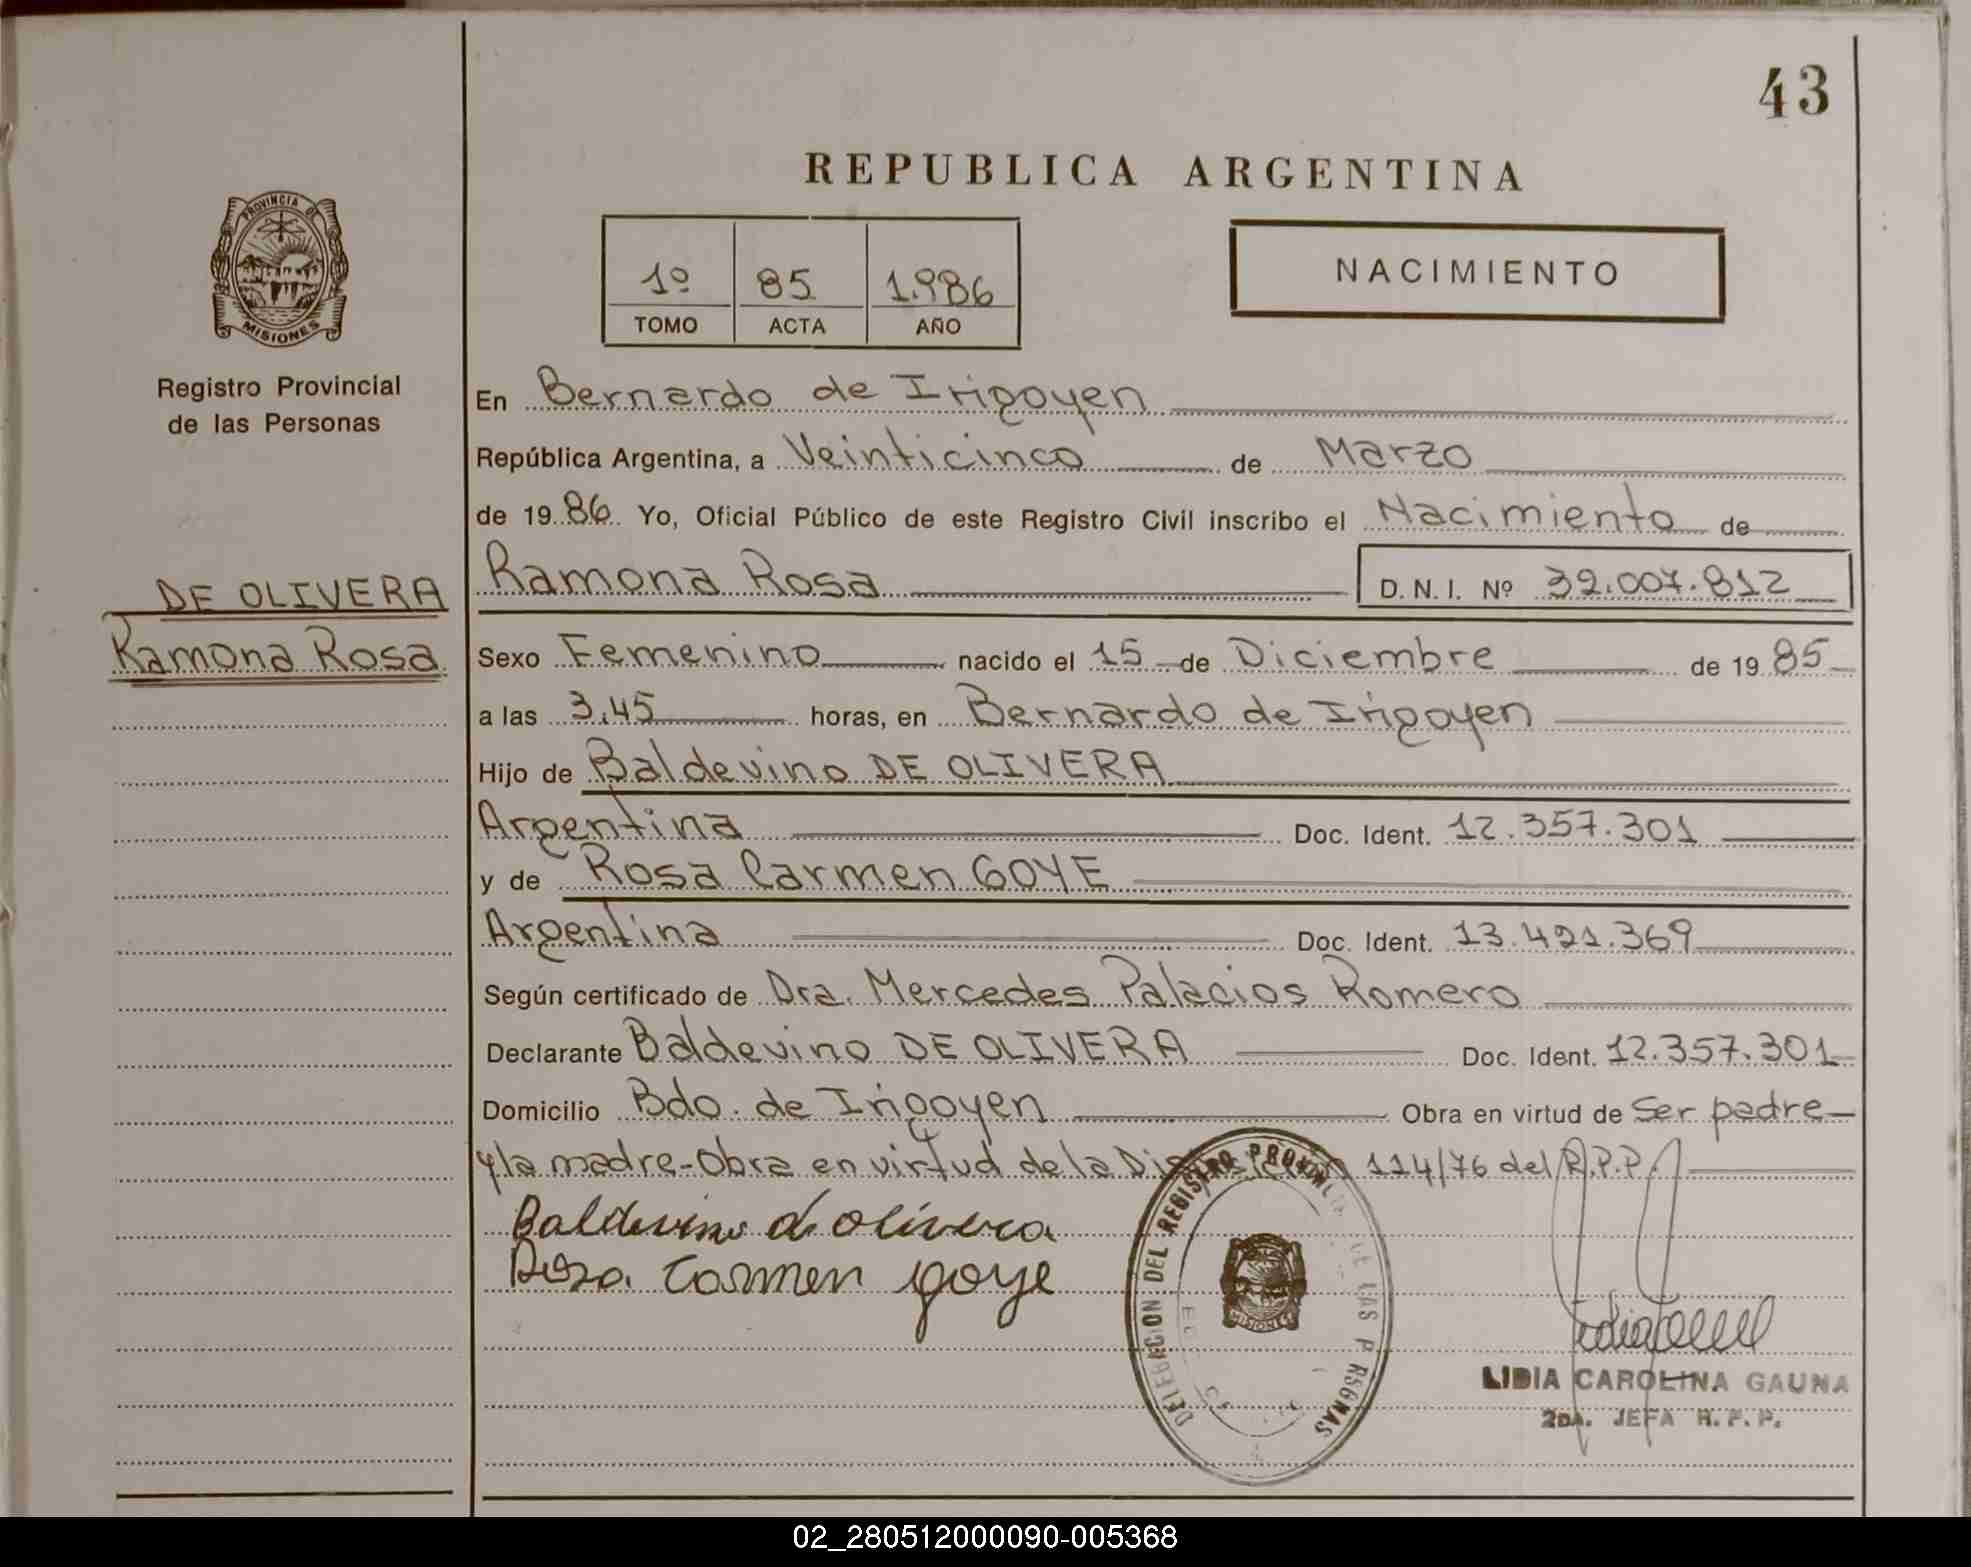 43
REPUBLICA ARGENTINA
PROVINCIA DE
MISIONES
Registro Provincial
de las Personas
1º 85 1.986
TOMO ACTA AÑO
NACIMIENTO
En Bernardo de Irigoyen
República Argentina, a Veinticinco de Marzo
de 1986 Yo, Oficial Público de este Registro Civil inscribo el Nacimiento de
DE OLIVERA
Ramona Rosa
Ramona Rosa D. N. I. Nº 32.007.812
Sexo Femenino nacido el 15 de Diciembre de 1985
a las 3,45 horas, en Bernardo de Irigoyen
Hijo de Baldevino DE OLIVERA
Argentina Doc. Ident. 12.357.301
y de Rosa Carmen GOYE
Argentina Doc. Ident. 13.421.369
Según certificado de Dra. Mercedes Palacios Romero
Declarante Baldevino DE OLIVERA Doc. Ident. 12.357.301
Domicilio Bdo. de Irigoyen Obra en virtud de Ser padre
y la madre-Obra en virtud de la 114/76 del R.P.P.
Baldevino de olivera
Rosa Carmen goye
DELEGACION DEL REGISTRO PROVINCIAL DE LAS PERSONAS
MISIONES
LIDIA CAROLINA GAUNA
2DA. JEFA R. P. P.
02_280512000090-005368